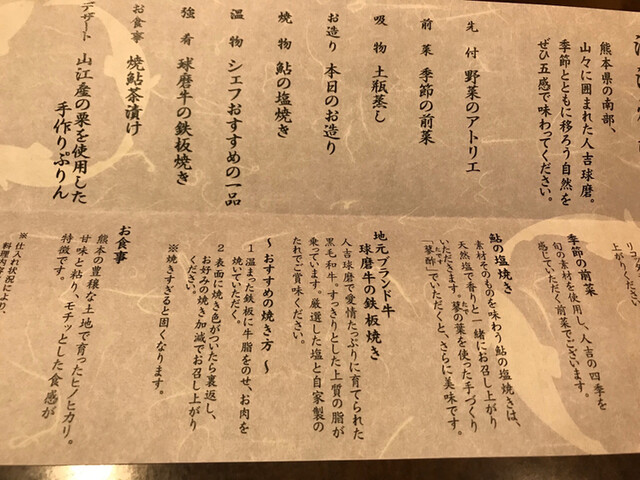 熊本県の南部、
山々に囲まれた人吉球磨。
季節とともに移ろう自然を
ぜひ五感で味わってください。
先付 野菜のアトリエ
前菜 季節の前菜
吸物 土瓶蒸し
お造り 本日のお造り
焼物 鮎の塩焼き
温物 シェフおすすめの一品
強肴 球磨牛の鉄板焼き
お食事 焼鮎茶漬け
デザート 山江産の栗を使用した
手作りぷりん
上がりくだ
季節の前菜
旬の素材を使用し、人吉の四季を
感じていただく前菜でございます。
鮎の塩焼き
素材そのものを味わう鮎の塩焼きは、
天然塩で香りと一緒にお召し上がり
いただきます。蓼の葉を使った手づくり
「蓼酢」でいただくと、さらに美味です。
地元ブランド牛
球磨牛の鉄板焼き
人吉球磨で愛情たっぷりに育てられた
黒毛和牛。すっきりとした上質の脂が
乗っています。厳選した塩と自家製の
たれでご賞味ください。
〜おすすめの焼き方〜
1 温まった鉄板に牛脂をのせ、お肉を
焼いていただく。
2 表面に焼き色がついたら裏返し、
お好みの焼き加減でお召し上がり
ください。
※焼きすぎると固くなります。
お食事
熊本の豊穣な土地で育ったヒノヒカリ。
甘味と粘り、モチッとした食感が
特徴です。
※仕入れ状況により、
料理内容